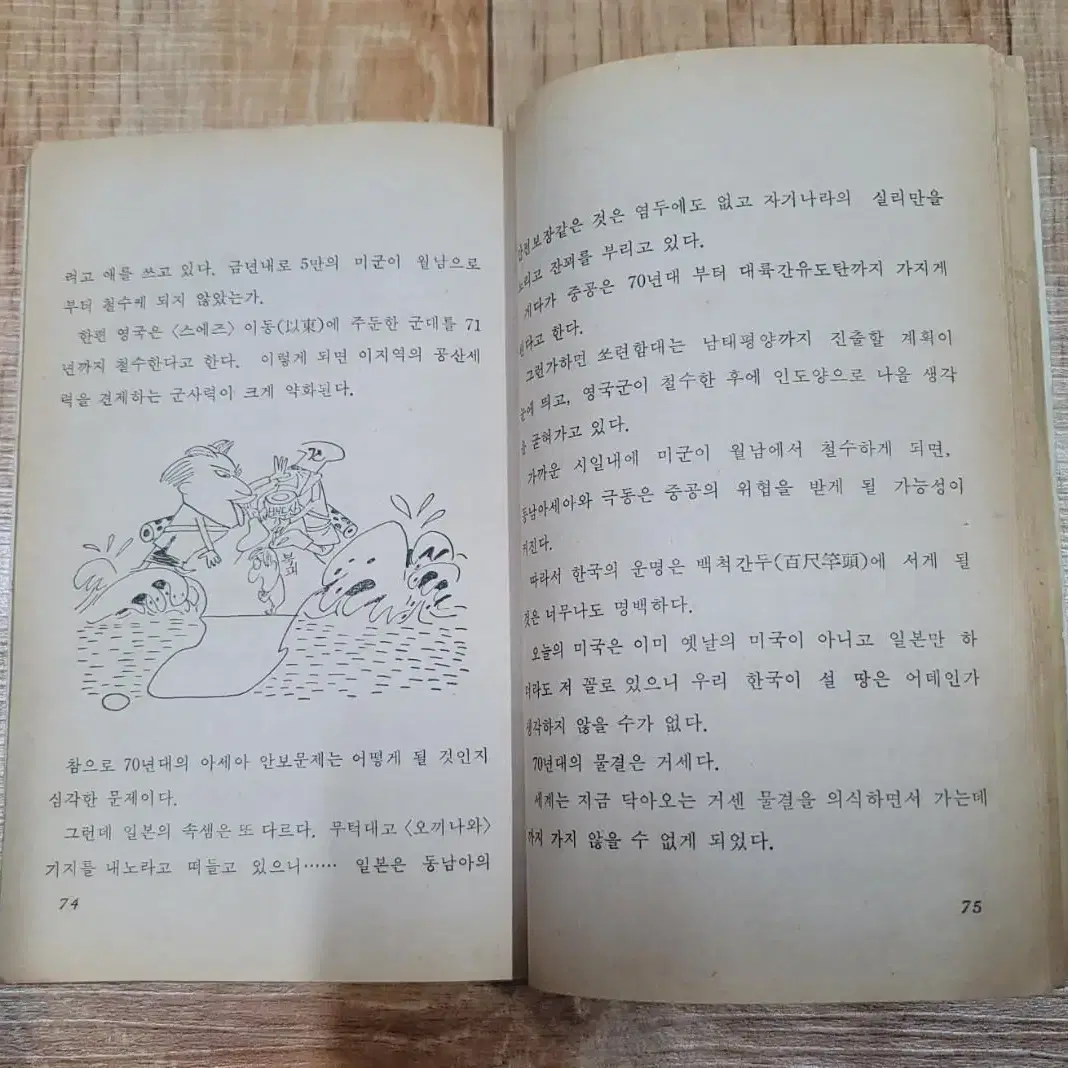 려고 애를 쓰고 있다. 금년내로 5만의 미군이 월남으로
부터 철수케 되지 않았는가.
한편 영국은 〈스에즈〉 이동(以東)에 주둔한 군대를 71
년까지 철수한다고 한다. 이렇게 되면 이지역의 공산세
력을 견제하는 군사력이 크게 약화된다.
불괴
참으로 70년대의 아세아 안보문제는 어떻게 될 것인지
심각한 문제이다.
그런데 일본의 속셈은 또 다르다. 무턱대고 〈오끼나와〉
기지를 내노라고 떠들고 있으니…… 일본은 동남아의
74
안전보장같은 것은 염두에도 없고 자기나라의 실리만을
노리고 잔꾀를 부리고 있다.
게다가 중공은 70년대 부터 대륙간유도탄까지 가지게
된다고 한다.
그런가하면 쏘련함대는 남태평양까지 진출할 계획이
눈에 띄고, 영국군이 철수한 후에 인도양으로 나올 생각
을 굳혀가고 있다.
가까운 시일내에 미군이 월남에서 철수하게 되면,
동남아세아와 극동은 중공의 위협을 받게 될 가능성이
커진다.
따라서 한국의 운명은 백척간두(百尺竿頭)에 서게 될
것은 너무나도 명백하다.
오늘의 미국은 이미 옛날의 미국이 아니고 일본만 하
더라도 저 꼴로 있으니 우리 한국이 설 땅은 어데인가
생각하지 않을 수가 없다.
70년대의 물결은 거세다.
세계는 지금 닥아오는 거센 물결을 의식하면서 가는데
까지 가지 않을 수 없게 되었다.
75